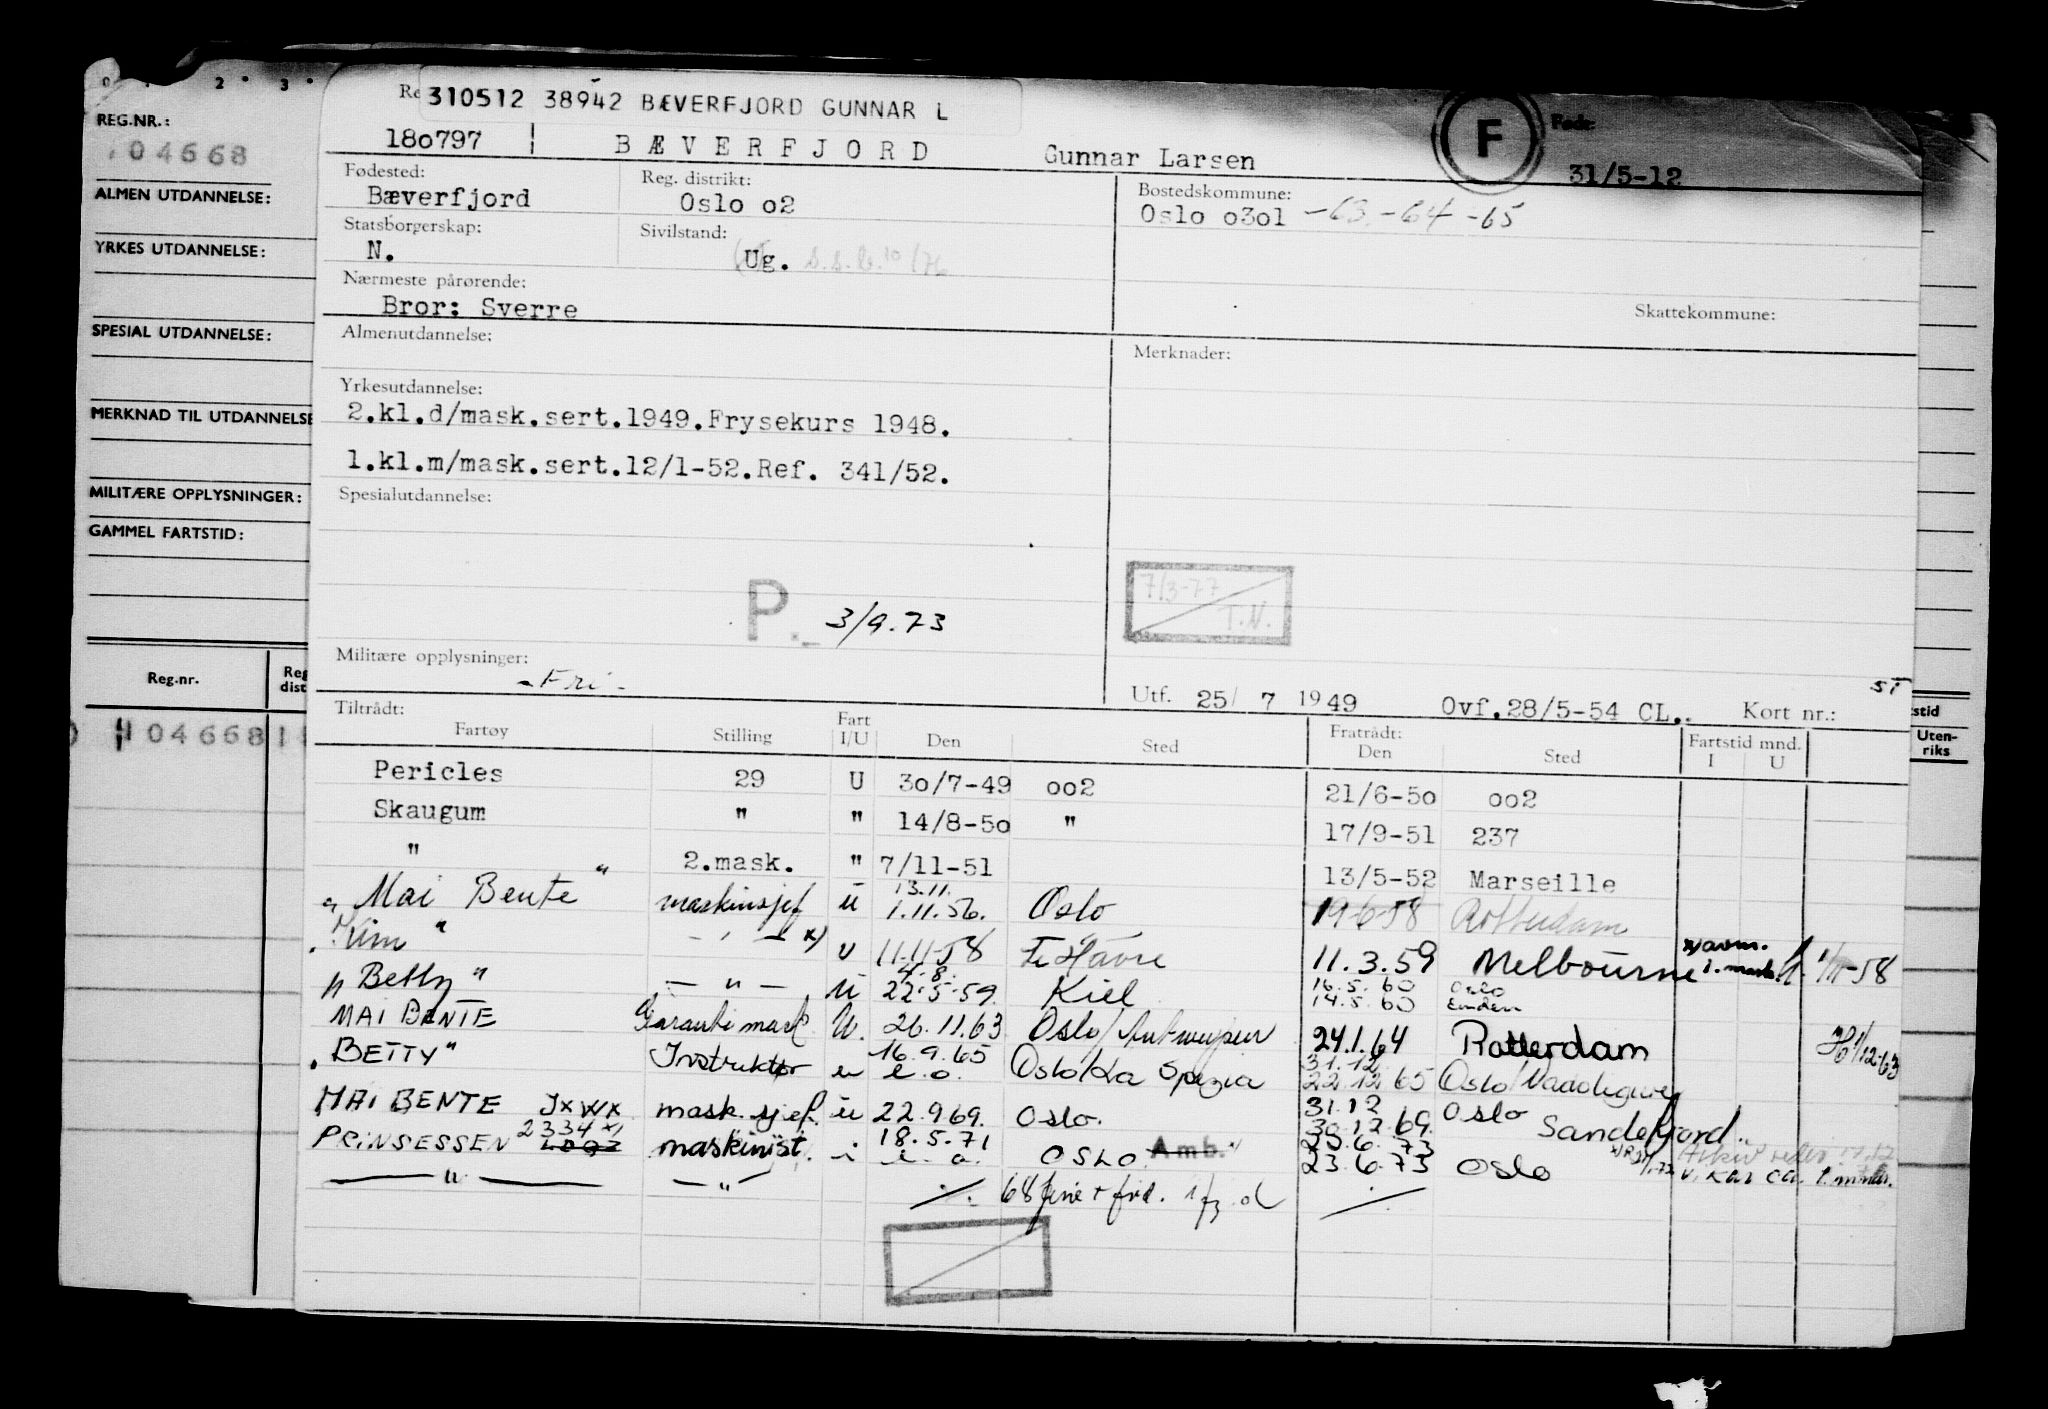 0 1 2 3
REG.NR.:
104668
ALMEN UTDANNELSE:
YRKES UTDANNELSE:
SPESIAL UTDANNELSE:
MERKNAD TIL UTDANNELSE
MILITÆRE OPPLYSNINGER:
GAMMEL FARTSTID:
Reg.nr. Reg dist
104668
310512 38942 BÆVERFJORD GUNNAR L
180797 BÆVERFJORD Gunnar Larsen F Født: 31/5-12
Fødested: Bæverfjord
Reg. distrikt: Oslo o2
Bostedskommune: Oslo o3o1 -63 -64 -65
Statsborgerskap: N.
Sivilstand: Ug.
Nærmeste pårørende: Bror: Sverre
Skattekommune:
Almenutdannelse:
Merknader:
Yrkesutdannelse:
2.kl.d/mask.sert.1949.Frysekurs 1948.
1.kl.m/mask.sert.12/1-52.Ref. 341/52.
Spesialutdannelse:
P. 3/9.73
7/3-77 T.N.
Militære opplysninger: -Fri-
Utf. 25/ 7 1949 Ovf.28/5-54 CL.. Kort nr.: ST
Tiltrådt: Fartøy Stilling Fart I/U Den Sted Fratrådt: Den Sted Fartstid mnd. I U
stid Uten- riks
Pericles 29 U 30/7-49 oo2 21/6-50 oo2
Skaugum " " 14/8-50 " 17/9-51 237
" 2.mask. " 7/11-51 13/5-52 Marseille
"Mai Bente" maskinsjef u 13.11. 1.11.56. Oslo 19-6-58 Rotterdam
"Kim" - " - x) u 11.11-58 Le Havre 11.3.59 Melbourne x) avm. 1. mask. 1/11-58
"Betty" - " - u 4.8. 22.5.59. Kiel 16.5.60 Oslo 14.5.60 Emden
MAI BENTE Garantimask. U. 26.11.63 Oslo/Antwerpen 24.1.64 Rotterdam 1/12-63
"BETTY" Instruktør u 16.9.65 e.o. Oslo/La Spezia 31.12. 22.12.65 Oslo/
MAI BENTE JXWX mask.sjef. u 22.9.69. Oslo. 31.12 30.12.69. Oslo Sandefjord.
PRINSESSEN 2334 x) maskinist. i 18.5.71 OSLO Amb. 23.6.73 Oslo
" " ./. ./.